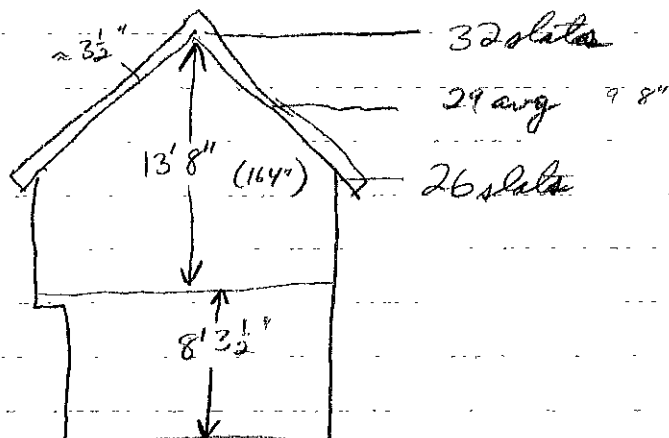 ≈ 3½"
32 slats
29 avg 9 8"
13' 8"
(164")
26 slats
8' 3½"